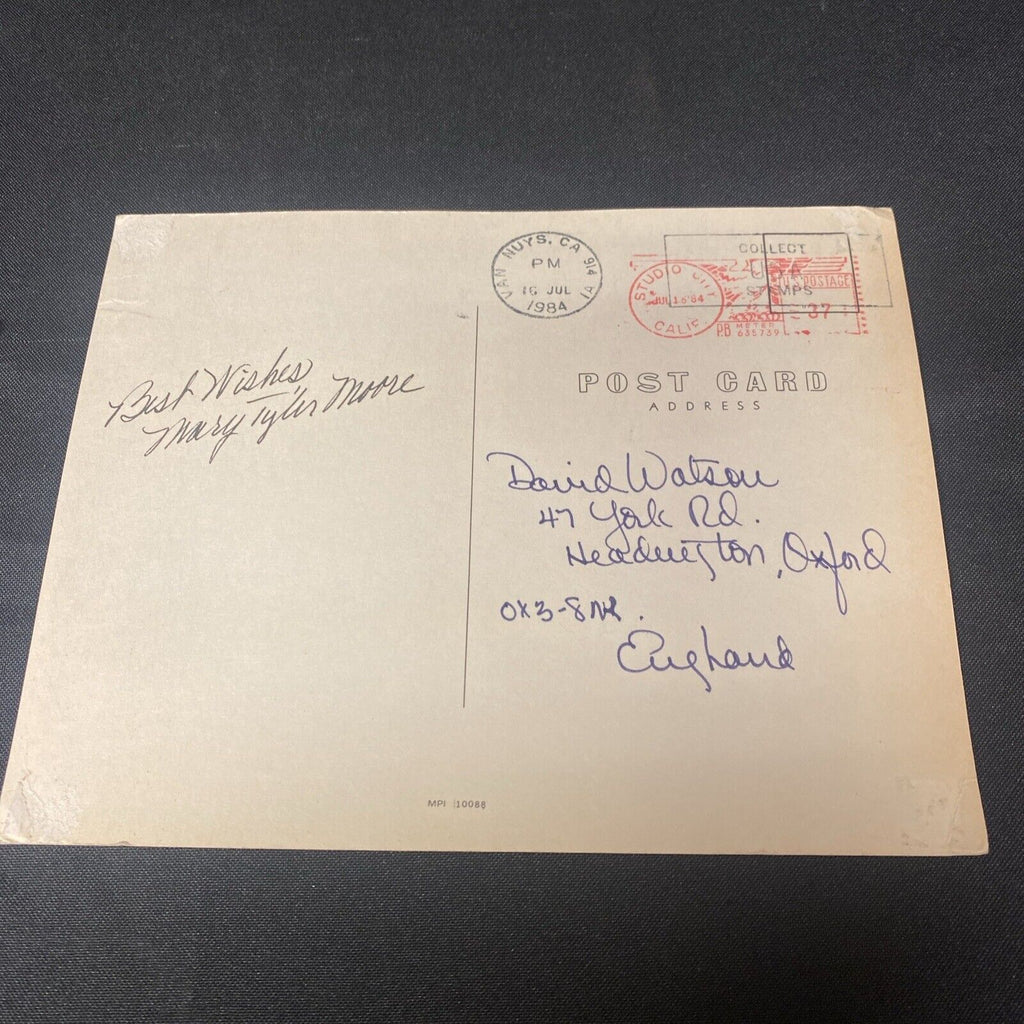 VAN NUYS, CA 914
PM
16 JUL
1984
1A
COLLECT
STAMPS
STUDIO CITY
JUL 16 '84
CALIF
U.S. POSTAGE
37
PB METER
635739
POST CARD
ADDRESS
Best Wishes,
Mary Tyler Moore
David Watson
47 York Rd.
Headington, Oxford
OX3-8NR.
England
MPI 10088